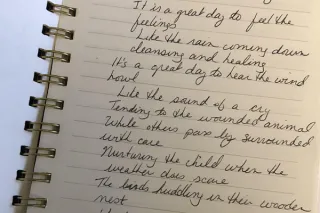 It is a great day to feel the
feelings
Like the rain coming down
cleansing and healing
It's a great day to hear the wind
howl
Like the sound of a cry
Tending to the wounded animal
While others pass by surrounded
with care
Nurturing the child when the
weather does scare
The birds huddling in their wooden
nest